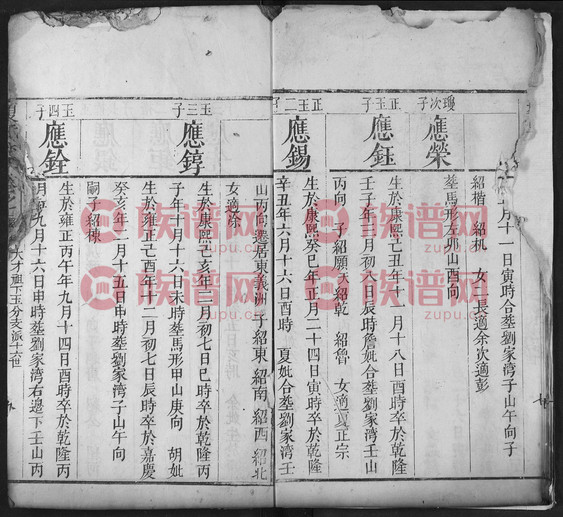 月十一日寅時合塟劉家湾子山午向子
紹楷 紹机 女二長適余次適彭
瓊次子
應榮
塟馬形左卯山酉向
正玉子
應鈺
生於康熙己丑年十一月十八日酉時卒於乾隆
壬子年三月初八日辰時詹妣合塟劉家湾壬山
丙向 子紹願 紹乾 紹魯 女適夏正宗
正玉二子
應錫
生於康熙癸巳年正月二十四日寅時卒於乾隆
辛丑年六月十六日酉時 夏妣合塟劉家湾壬
山丙向遷居東義洲子紹東 紹南 紹西 紹北
女適涂
玉三子
應錞
生於康熙己亥年三月初七日巳時卒於乾隆丙
子年十月十六日未時塟馬形甲山庚向 胡妣
生於雍正己酉年十二月初七日辰時卒於嘉慶
癸亥年二月十五日申時塟劉家湾子山午向
嗣子紹
玉四子
應銓
生於雍正丙午年九月十四日酉時卒於乾隆丙
月
九月十六日申時塟劉家湾右邊下壬山丙
十六世
族谱网
zupu.cn